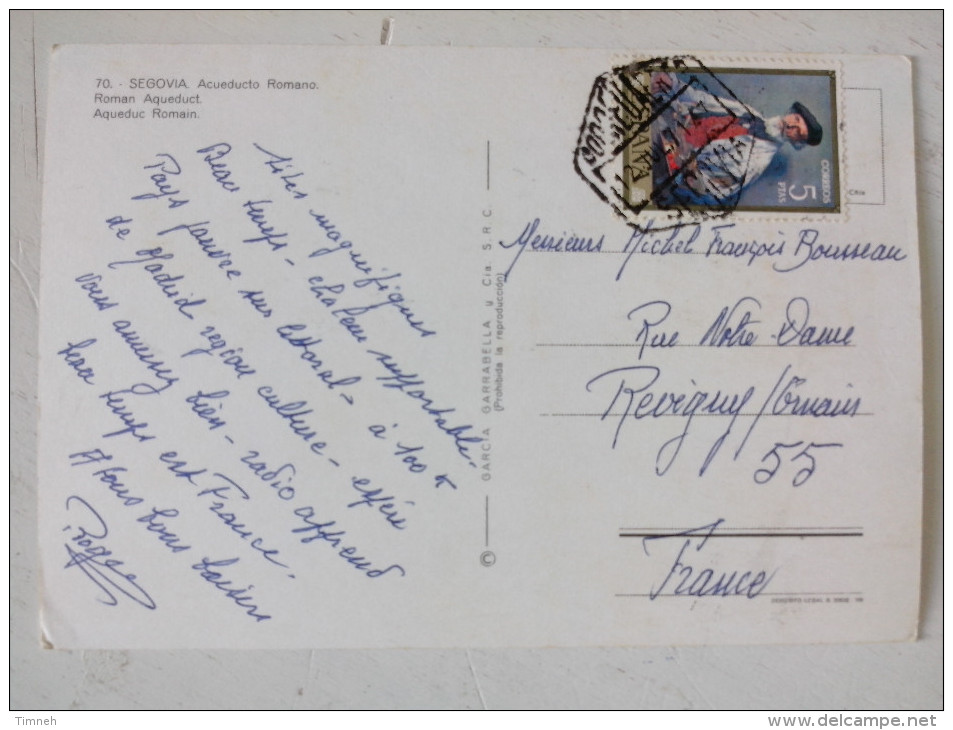 70. - SEGOVIA. Acueducto Romano.
Roman Aqueduct.
Aqueduc Romain.
Sites magnifiques
Beau temps - chaleur supportable.
Pays pauvre sur littoral - à 100 K
de Madrid région culture - espère
vous amusez bien - radio apprend
beau temps est France.
A tous bons baisers
Roger
© GARCÍA GARRABELLA y Cía. S.R.C.
(Prohibida la reproducción)
ESPAÑA
CORREOS
5
PTAS
Messieurs Michel François Bousseau
Rue Notre-Dame
Revigny/Ornain
55
France
Timneh
www.delcampe.net